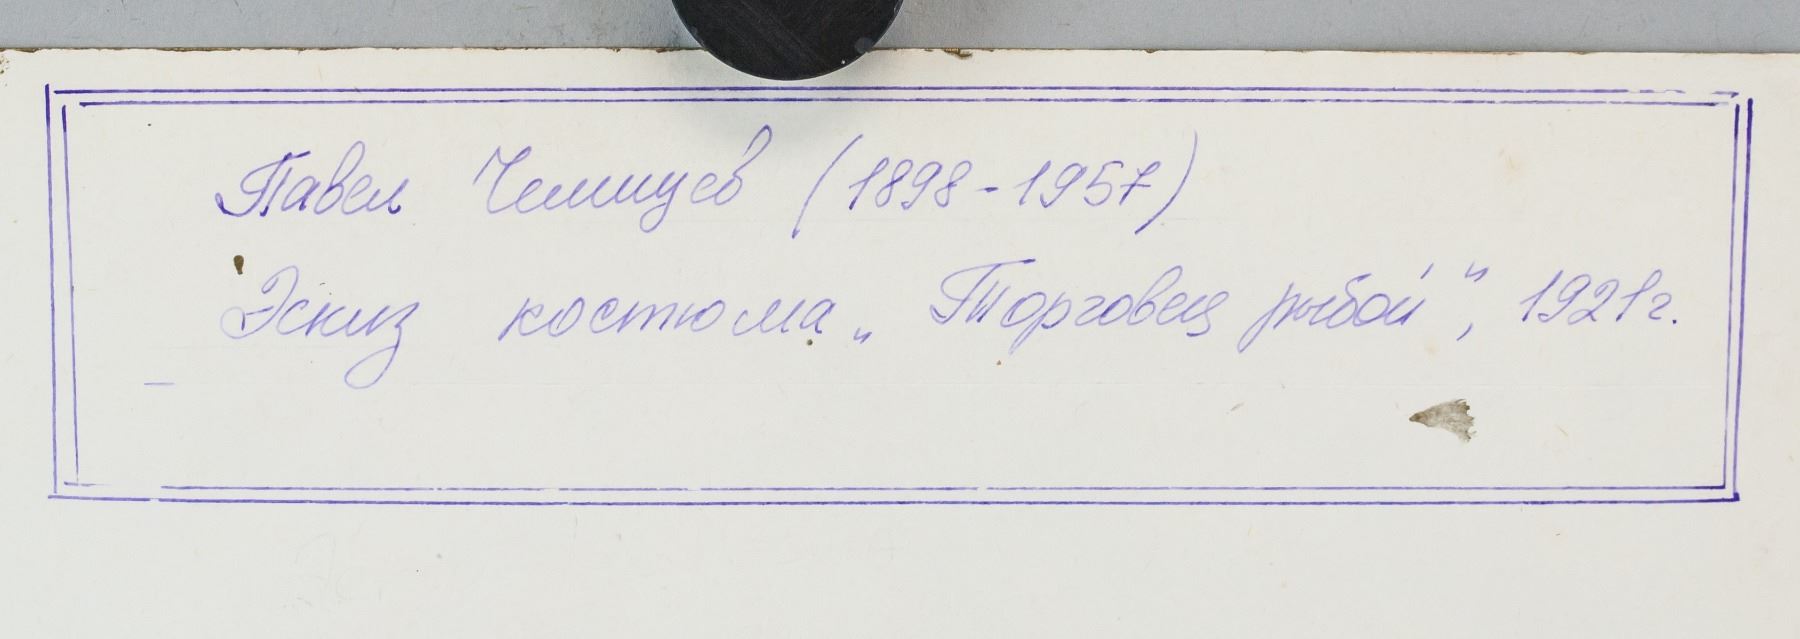 Павел Челищев (1898-1957)
Эскиз костюма „Торговец рыбой", 1921г.